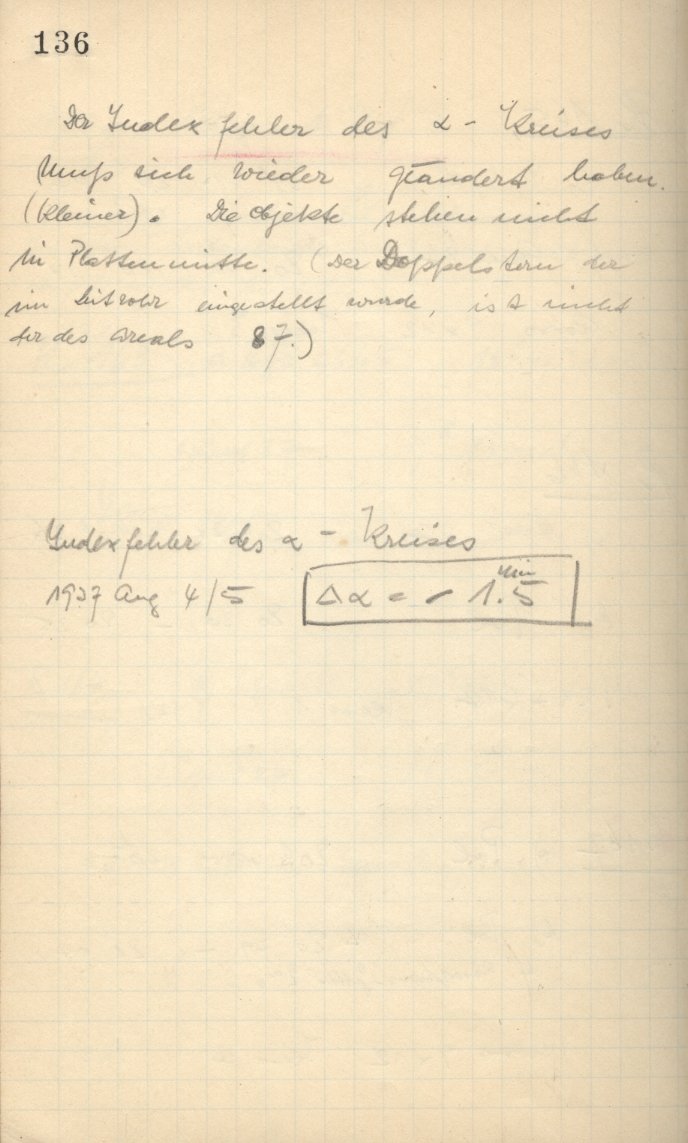 136
Der Indexfehler des α - Kreises
Muß sich wieder geändert haben.
(kleiner). Die Objekte stehen nicht
in Plattenmitte. (Der Doppelstern der
im Leitrohr eingestellt wurde, ist nicht
der des Areals 87.)
Indexfehler des α - Kreises
1937 Aug 4/5 Δα = - 1.5 Min